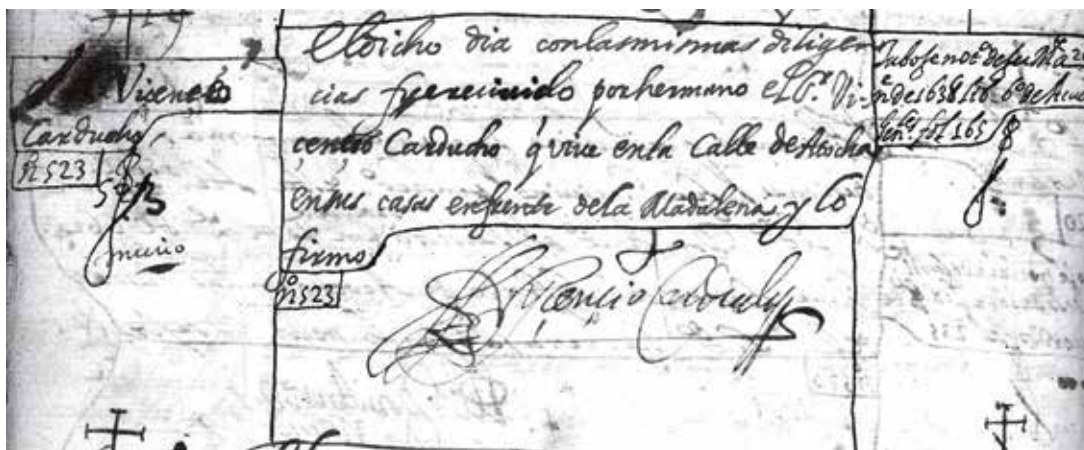 Vicencio
Carducho
nº 523
523
murio
El dicho dia con las mismas diligen
cias fue recivido por hermano el Sr. Vi-
cencio Carducho q vive en la Calle de Atocha
en sus casas enfrente de la Madalena y lo
firmo
nº 523
Vicencio Carducho
de 1638 lib 6º de
fol 165